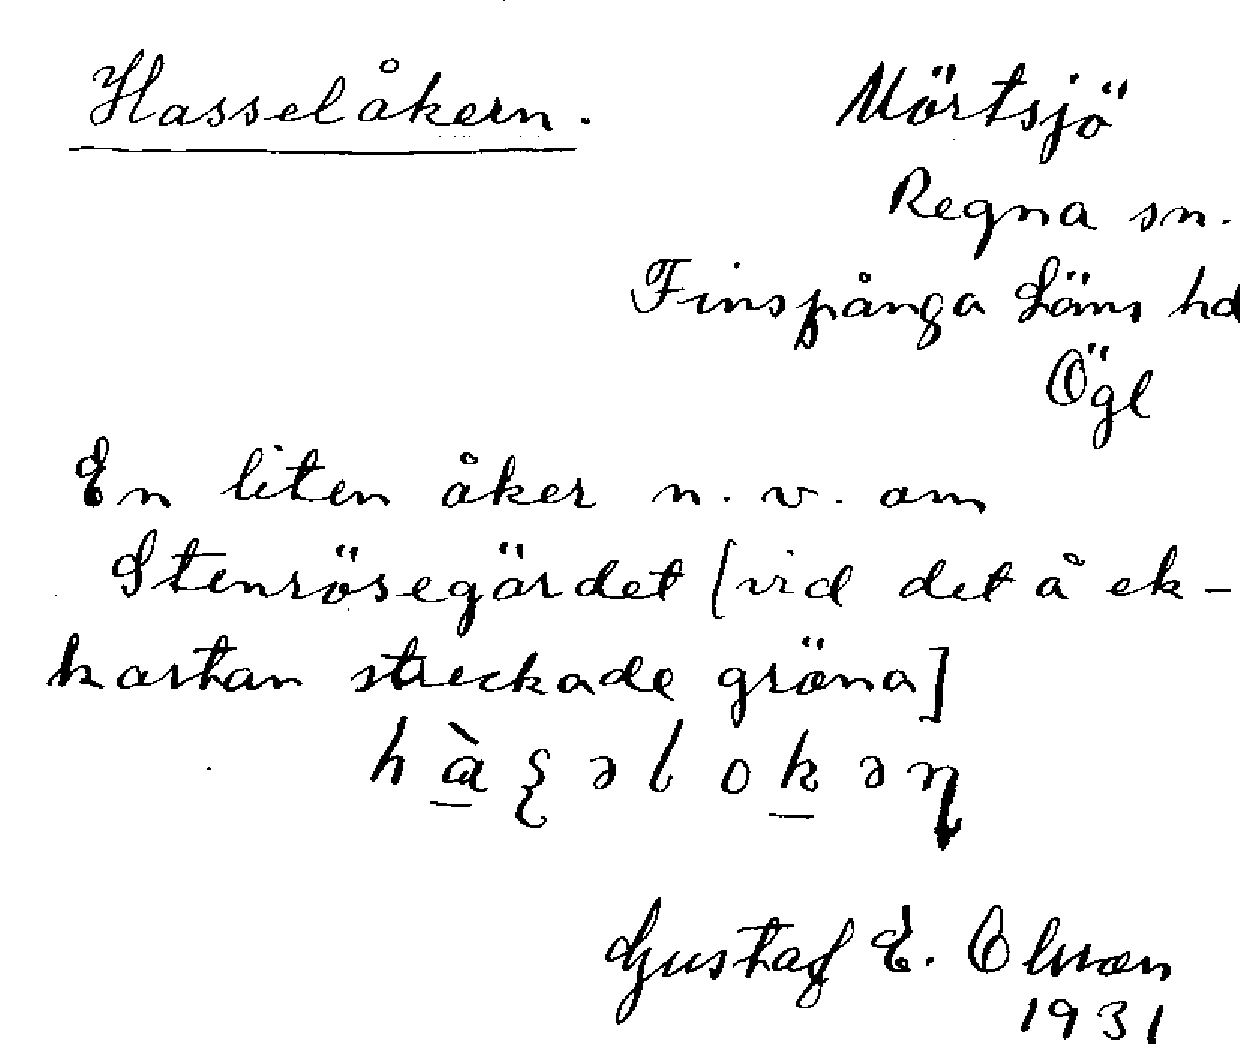 Hasselåkern.
Mörtsjö
Regna sn.
Finspånga Läns hd
Ögl
En liten åker n.v. om
Stenrösegärdet [vid det å ek-
kartan streckade gröna]
Gustaf E. Olsson
1931